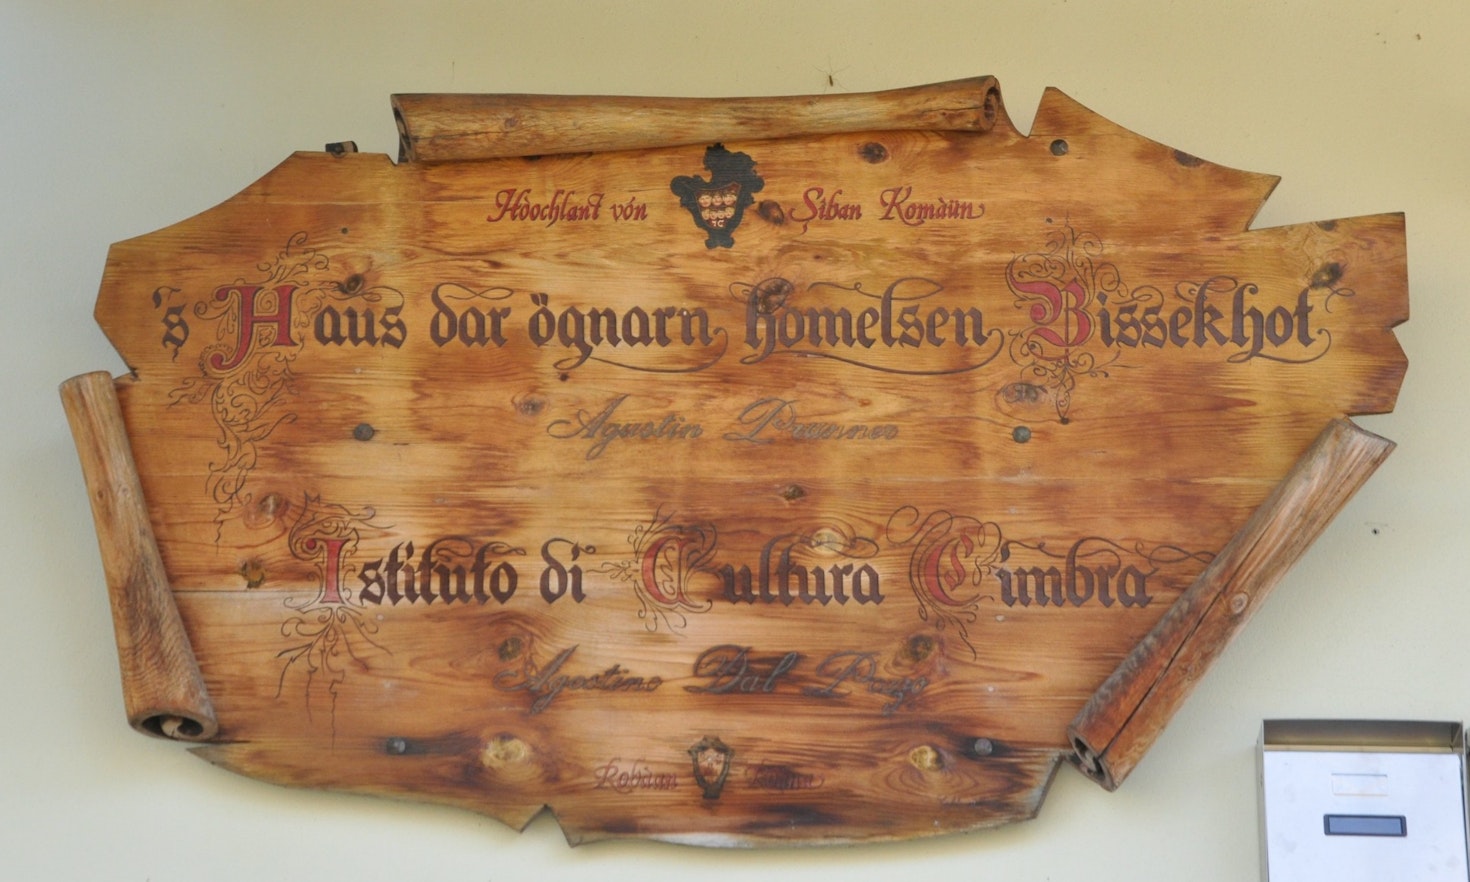 Hòochlant vón Siban Komàün
's Haus dar ögnarn homelsen Bissekhot
Agustin Prunner
Istituto di Cultura Cimbra
Agostino Dal Pozo
Robàan